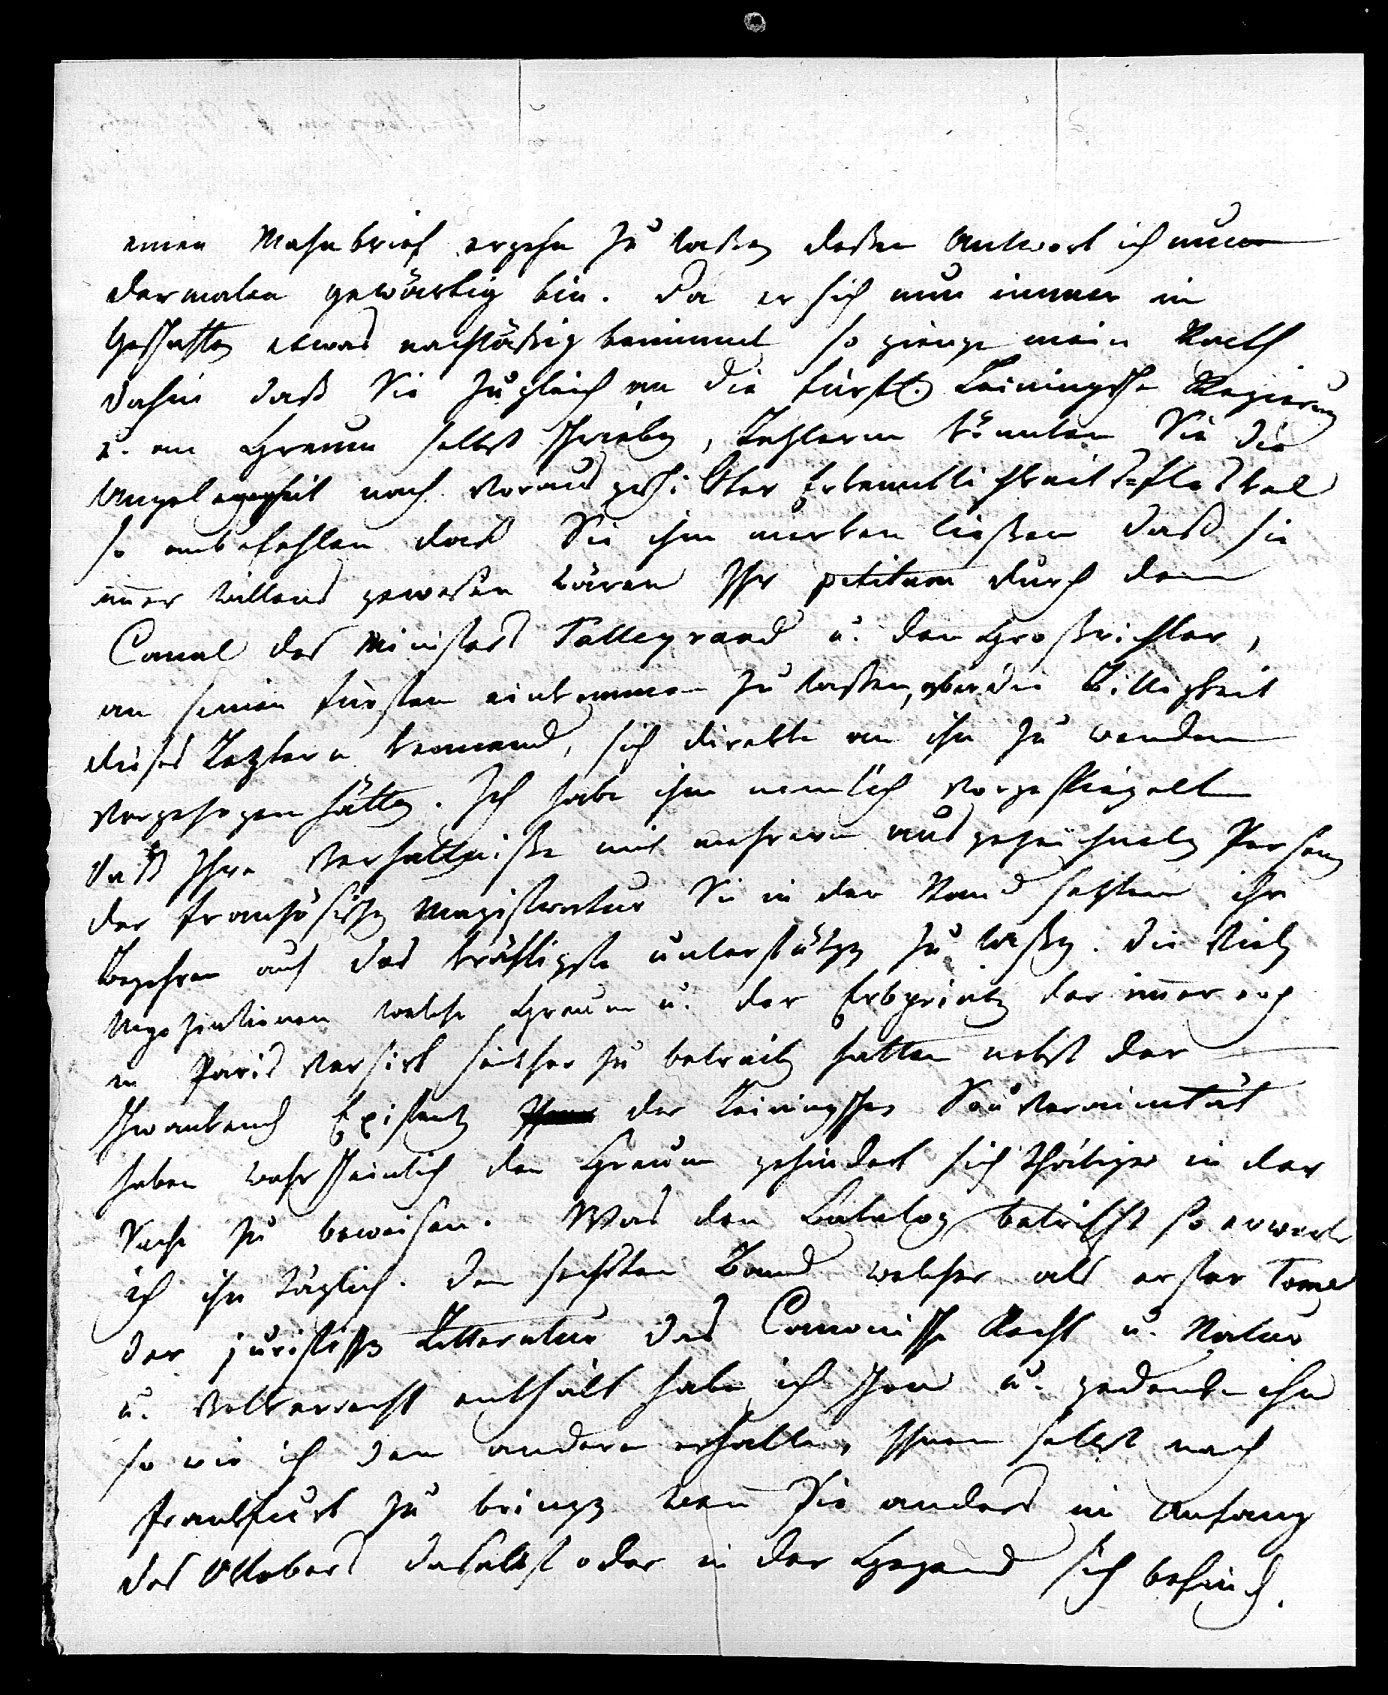 einen Mahnbrief ergehn zu laßen deßen Antwort ich nun
dermalen gewärtig bin. Da er sich nun immer in
Geschäften etwas nachläßig benimmt so gienge mein Rath
dahin daß Sie zugleich an die fürstl. Leiningsche Regierung
u. an Greum selbst schrieben, Leztern könnten Sie die
Angelegenheit nach vorausgeschikter Erkenntlichkeits-floskel
so anbefehlen daß Sie ihm merken ließen daß sie
im̄er Willens gewesen wären Ihr petitum durch den
Canal des Ministers Talleyrand u. den Großrichter,
an seinen fürsten einkommen zu laßen, aber die Billigkeit
dieses Leztern kennend, sich direkte an ihn zu wenden
vorgezogen hätten. Ich habe ihm nemlich vorgespiegelt
daß Ihre Verhältniße mit mehrern ausgezeichneten Personen
der französischen Magistratur Sie in den Stand sezten ihr
Begehren auf das kräftigste unterstützen zu laßen. Die vielen
Negoziationen welche Greum u. der Erbprintz der im̄er noch
in Paris versirt seither zu betreiben hatten nebst der
schwankend Existenz der Leiningschen Souverainität
haben wahrscheinlich den Greum gehindert sich thätiger in der
Sache zu beweisen. Was den Catalog betrifft so erwarte
ich ihn täglich. Den sechsten Band welcher als erster Tome
der juristischen Litteratur das Canonische Recht u. Natur
u. Völkerrecht enthält habe ich schon u. gedenke ihn
so wie ich den andern erhalte, Ihnen selbst nach
Frankfurt zu bringen wen̄ Sie anders im Anfang
des Oktobers daselbst oder in der Gegend sich befinden.